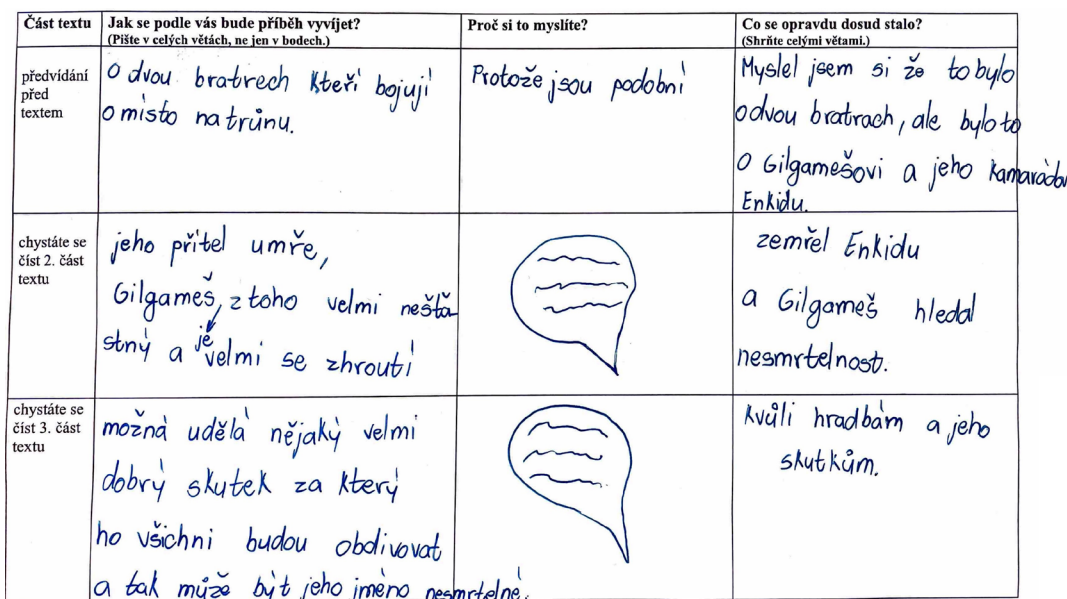 Část textu
Jak se podle vás bude příběh vyvíjet?
(Pište v celých větách, ne jen v bodech.)
Proč si to myslíte?
Co se opravdu dosud stalo?
(Shrňte celými větami.)
předvídání
před
textem
O dvou bratrech kteří bojují
o místo na trůnu.
Protože jsou podobní
Myslel jsem si že to bylo
o dvou bratrach, ale bylo to
o Gilgamešovi a jeho kamarádov
Enkidu.
chystáte se
číst 2. část
textu
jeho přítel umře,
Gilgameš, z toho velmi nešťa
stný a je velmi se zhroutí
zemřel Enkidu
a Gilgameš hledal
nesmrtelnost.
chystáte se
číst 3. část
textu
možná udělá nějaký velmi
dobrý skutek za který
ho všichni budou obdivovat
a tak může být jeho jméno nesmrtelné.
Kvůli hradbám a jeho
skutkům.